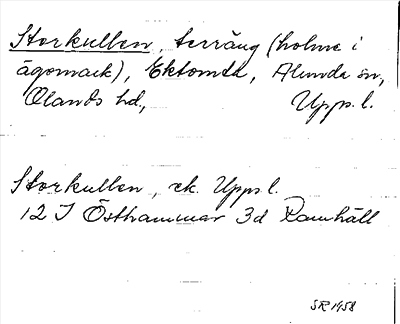 Storkullen, terräng (holme i
ägomark), Ektomta, Alunda sn,
Olands hd, Upps. l.
Storkullen, ek. Upps. l.
12 I Östhammar 3d Ramhäll
SR 1958